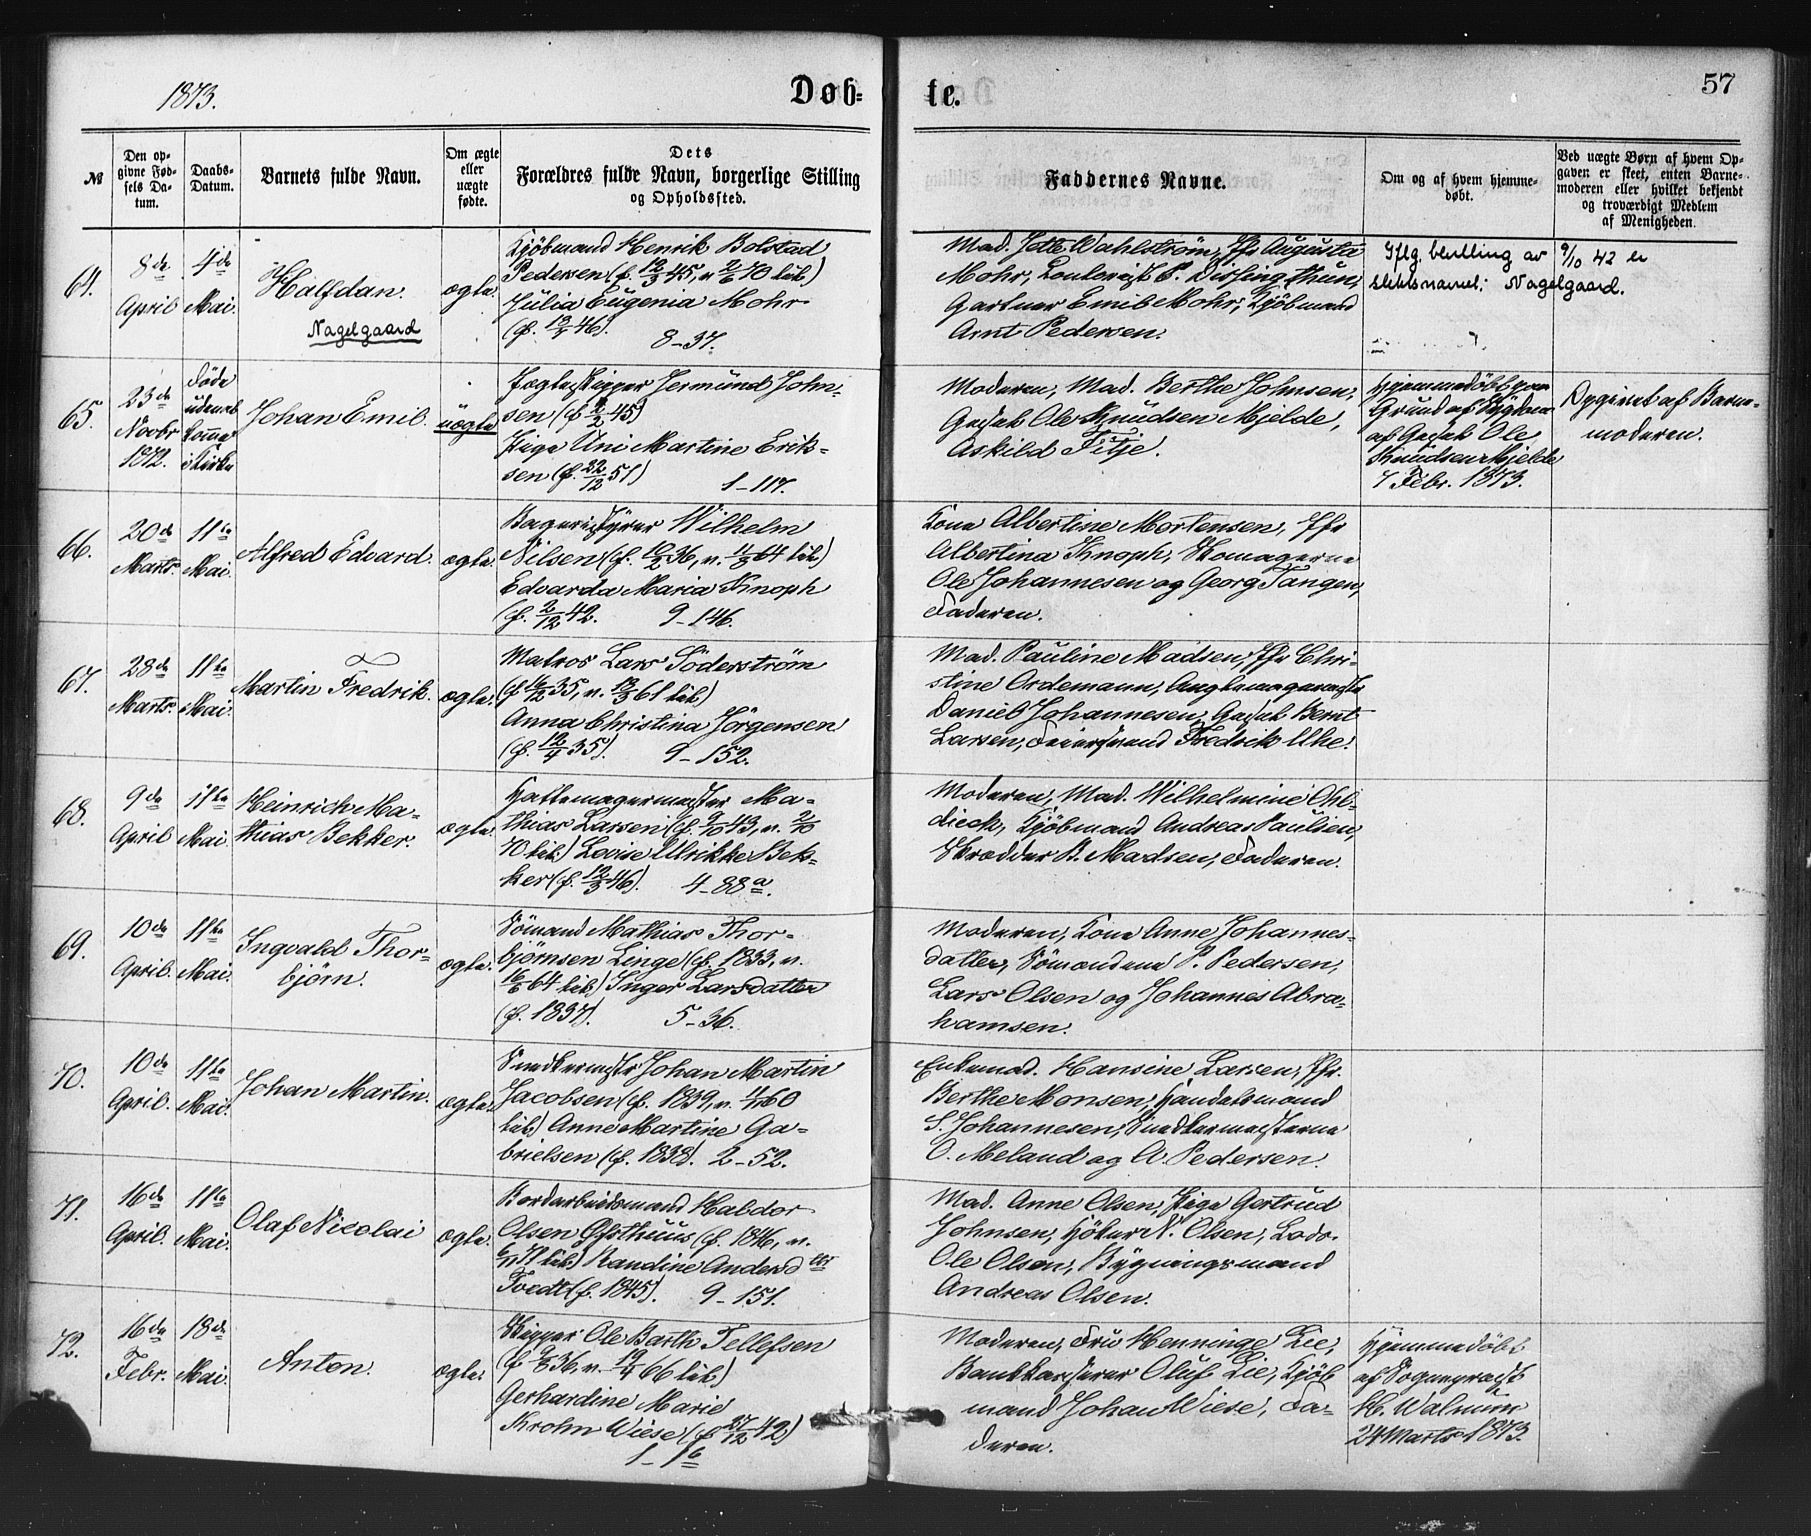 1873.
Døb-
te.
57
№
Den op-
givne Fød-
sels Da-
tum.
Daabs-
Datum.
Barnets fulde Navn.
Om ægte
eller
uægte
fødte.
Dets
Forældres fulde Navn, borgerlige Stilling
og Opholdssted.
Faddernes Navne.
Om og af hvem hjemme-
døbt.
Ved uægte Børn af hvem Op-
gaven er skeet, enten Barne-
moderen eller hvilket bekjendt
og troværdigt Medlem
af Menigheden.
64.
8de
April
4de
Mai.
Halfdan.
Nagelgaard
ægte.
Kjöbmand Henrik Bolstad
Pedersen (f. 12/3 45, v. 2/6 70 hib.)
Julia Eugenia Mohr
(f. 46).
8-37.
Mad. Jette Wahlström, Jfr Augusta
Mohr, P. Dissingthun,
Gartner Emil Mohr, Kjöbmand
Arnt Pedersen.
Iflg. bevilling av 9/10 42 er
slektsnavnet: Nagelgaard.
65.
23de
Novbr
1872.
Föde
udenat
komme
i Kirke
Johan Emil.
uægte
Skipper Jermund John-
sen (f. 2/2 45)
Pige Uni Martine Erik-
sen (f. 22/12 51)
1-117.
Moderen, Mad. Berthe Johnsen,
Ole Knudsen Mjelde,
Askild Fitje.
Hjemmedöbt paa
Grund af Sygdom
af Ole
Knudsen Mjelde
7 Febr. 1873.
Opgivet af Barne-
moderen.
66.
20de
Marts.
11te
Mai.
Alfred Edvard.
ægte.
Wilhelm
Nilsen (f. 10/2 36, v. 11/3 64 hib.)
Edvarda Maria Knoph
(f. 2/12 42.
9-146.
Kone Albertine Mortensen, Jfr
Albertina Knoph, Skomagerne
Ole Johannesen og Georg Tangen,
Faderen.
67.
28de
Marts.
11te
Mai.
Martin Fredrik.
ægte.
Matros Lars Söderström
(f. 16/12 35, v. 61 hib.)
Anna Christina Jörgensen
(f. 35).
9-152.
Mad. Pauline Madsen, Jfr Chri-
stine Ordemann,
Daniel Johannesen, Bernt
Larsen, Fredrik Uhe.
68.
9de
April
11te
Mai.
Heinrich Ma-
thias Bekker.
ægte.
Hattemagermester Ma-
thias Larsen (f. 9/10 43, v. 2/10
70 hib.) Lovise Ulrikke Bek-
ker (f. 12/3 46).
4-88a.
Moderen, Mad. Wilhelmine Ohl-
dieck, Kjöbmand Andreas Paulsen,
Skrædder B. Madsen, Faderen.
69.
10de
April.
11te
Mai.
Ingvald Thor-
björn.
ægte.
Sömand Mathias Thor-
björnsen Linge (f. 1833, v.
16/6 64 hib.) Inger Larsdatter
(f. 1837).
5-36.
Moderen, Kone Anne Johannes-
datter, Sömændene P. Pedersen,
Lars Olsen og Johannes Abra-
hamsen.
70.
10de
April.
11te
Mai.
Johan Martin.
ægte.
Snedkermestr Johan Martin
Jacobsen (f. 1839, v. 60
hib.) Anne Martine Ga-
brielsen (f. 1838). 2-52.
Enkemad. Hansine Larsen, Jfr.
Berthe Monsen, Handelsmand
S. Johannesen, Snedkermesterne
O. Meland og A. Pedersen.
71.
16de
April.
11te
Mai.
Olaf Nicolai
ægte.
Bordarbeidsmand Haldor
Olsen Østhuus (f. 1846, v.
71 hib.) Randine Andersdtr
Tvedt (f. 1845).
9-151.
Mad. Anne Olsen, Pige Gertrud
Johnsen, Höker N. Olsen, Lods.
Ole Olsen, Bygningsmand
Andreas Olsen.
72.
16de
Febr.
18de
Mai.
Anton.
ægte.
Skipper Ole Barth Tellefsen
(f. 36, v. 19/4 66 hib.)
Gerhardine Marie
Krohn Wiese (f. 27/12 42)
1-1b
Moderen, Fru Henninge Lie,
Bankkasserer Oluf Lie, Kjöb
mand Johan Wiese, Fa-
deren.
Hjemmedöbt
af Sognepræst
H. Walnum
24 Marts 1873.